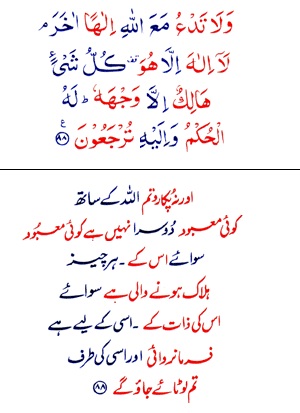 وَلَا تَدْعُ مَعَ اللّٰهِ اِلٰهًا اٰخَرَ ۘ
لَآ اِلٰهَ اِلَّا هُوَ ۟ كُلُّ شَیْءٍ
هَالِكٌ اِلَّا وَجْهَهٗ ؕ لَهُ
الْحُكْمُ وَاِلَیْهِ تُرْجَعُوْنَ ﴿۸۸﴾ ع
اور نہ پکارو تم اللہ کے ساتھ
کوئی معبود دُوسرا نہیں ہے کوئی معبُود
سوائے اس کے ۔ ہر چیز
ہلاک ہونے والی ہے سوائے
اس کی ذات کے ۔ اسی کے لیے ہے
فرمانروائی اور اسی کی طرف
تم لوٹائے جاؤ گے ﴿۸۸﴾